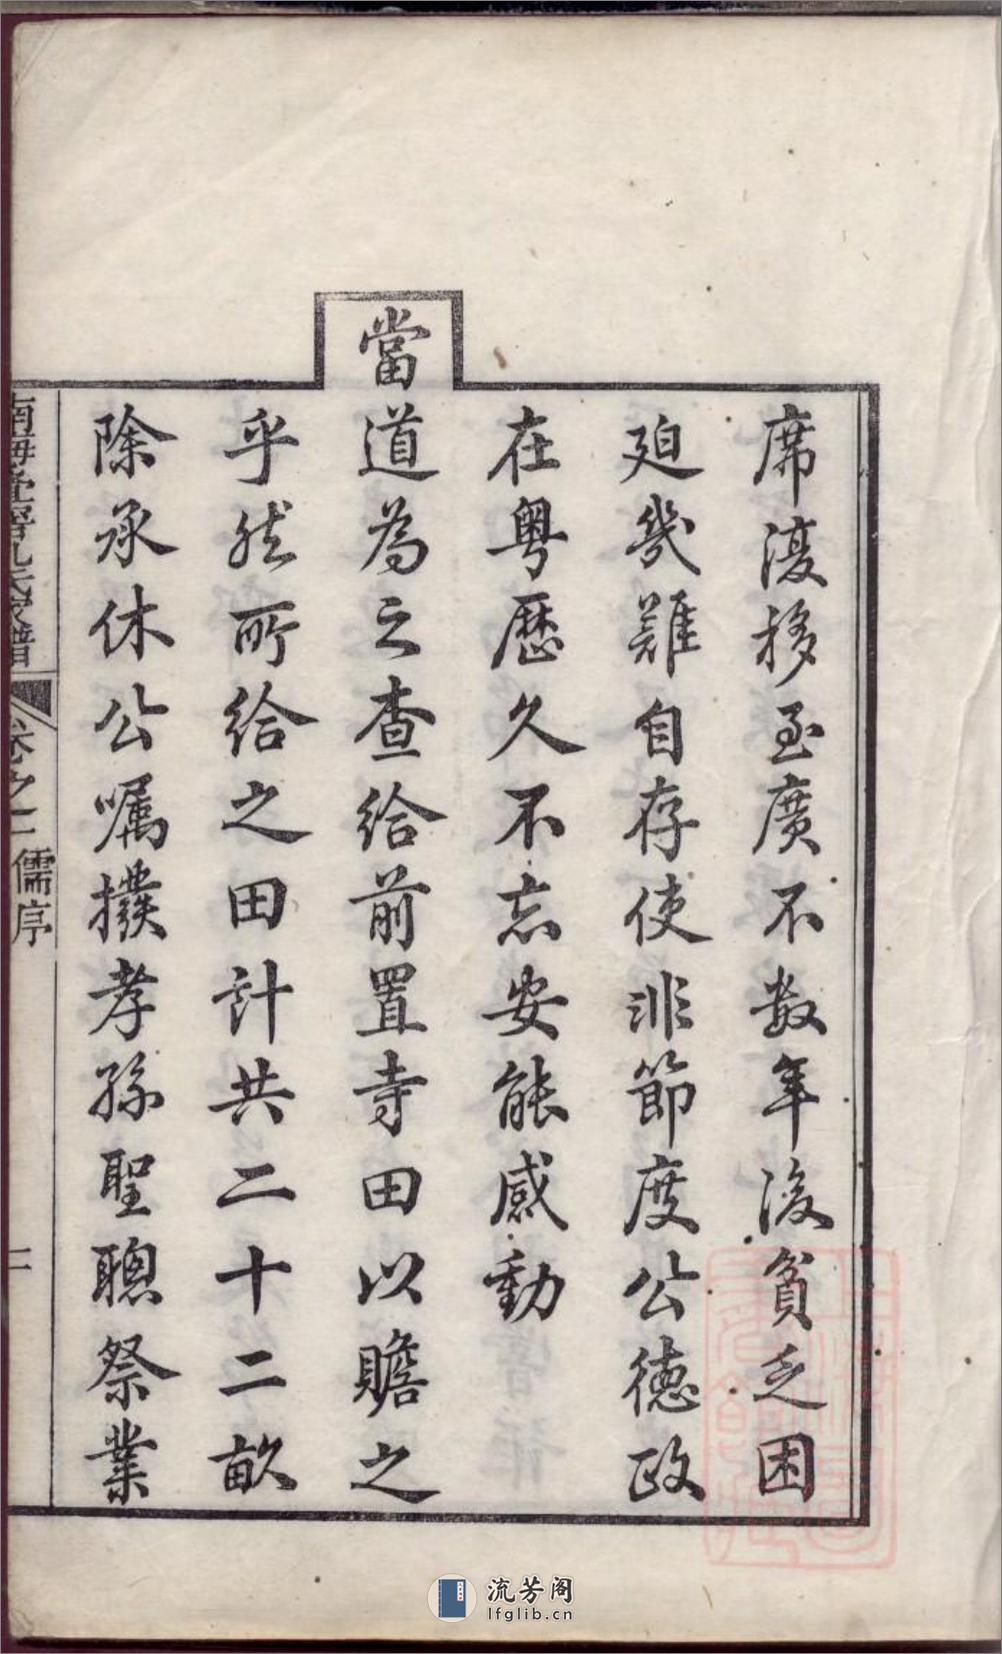 席濅移至廣不数年後貧乏困
廹幾難自存使非節度公德政
在粤歷久不忘安能感動
當道為之查給前置寺田以贍之
乎然所給之田計共二十二畝
除承休公嘱撥孝孫聖聰祭業
南海疊滘孔氏家譜
卷之一
儒序
二
流芳阁
lfglib.cn